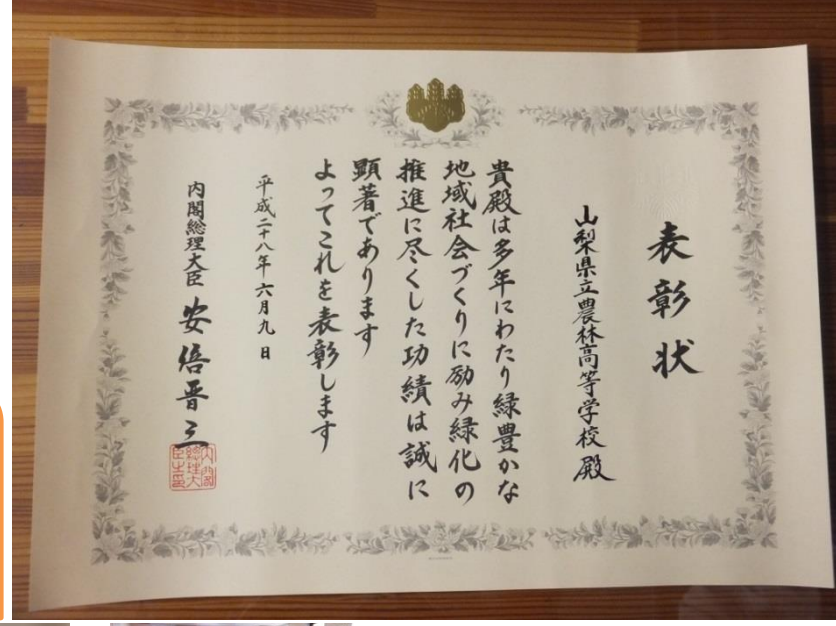 表彰状
山梨県立農林高等学校 殿
貴殿は多年にわたり緑豊かな
地域社会づくりに励み緑化の
推進に尽くした功績は誠に
顕著であります
よってこれを表彰します
平成二十八年六月九日
内閣総理大臣 安倍晋三
内閣総理大臣之印